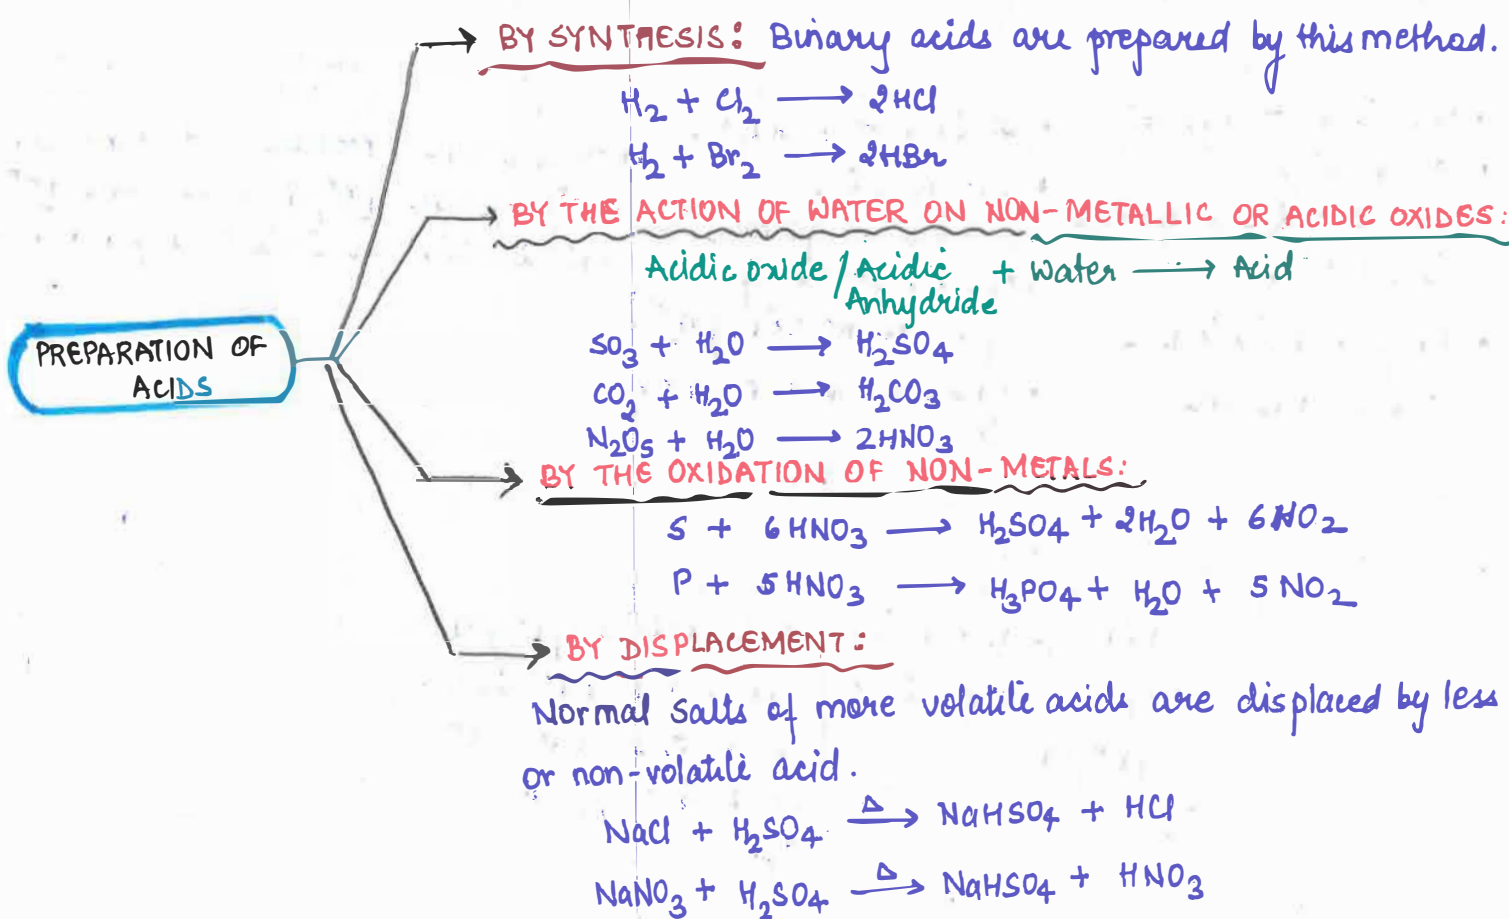 BY SYNTHESIS: Binary acids are prepared by this method.
H₂ + Cl₂ ⟶ 2HCl
H₂ + Br₂ ⟶ 2HBr
BY THE ACTION OF WATER ON NON-METALLIC OR ACIDIC OXIDES:
Acidic oxide / Acidic Anhydride + Water ⟶ Acid
SO₃ + H₂O ⟶ H₂SO₄
CO₂ + H₂O ⟶ H₂CO₃
N₂O₅ + H₂O ⟶ 2HNO₃
PREPARATION OF
ACIDS
BY THE OXIDATION OF NON-METALS:
S + 6HNO₃ ⟶ H₂SO₄ + 2H₂O + 6NO₂
P + 5HNO₃ ⟶ H₃PO₄ + H₂O + 5NO₂
BY DISPLACEMENT:
Normal salts of more volatile acids are displaced by less
or non-volatile acid.
NaCl + H₂SO₄ —Δ→ NaHSO₄ + HCl
NaNO₃ + H₂SO₄ —Δ→ NaHSO₄ + HNO₃